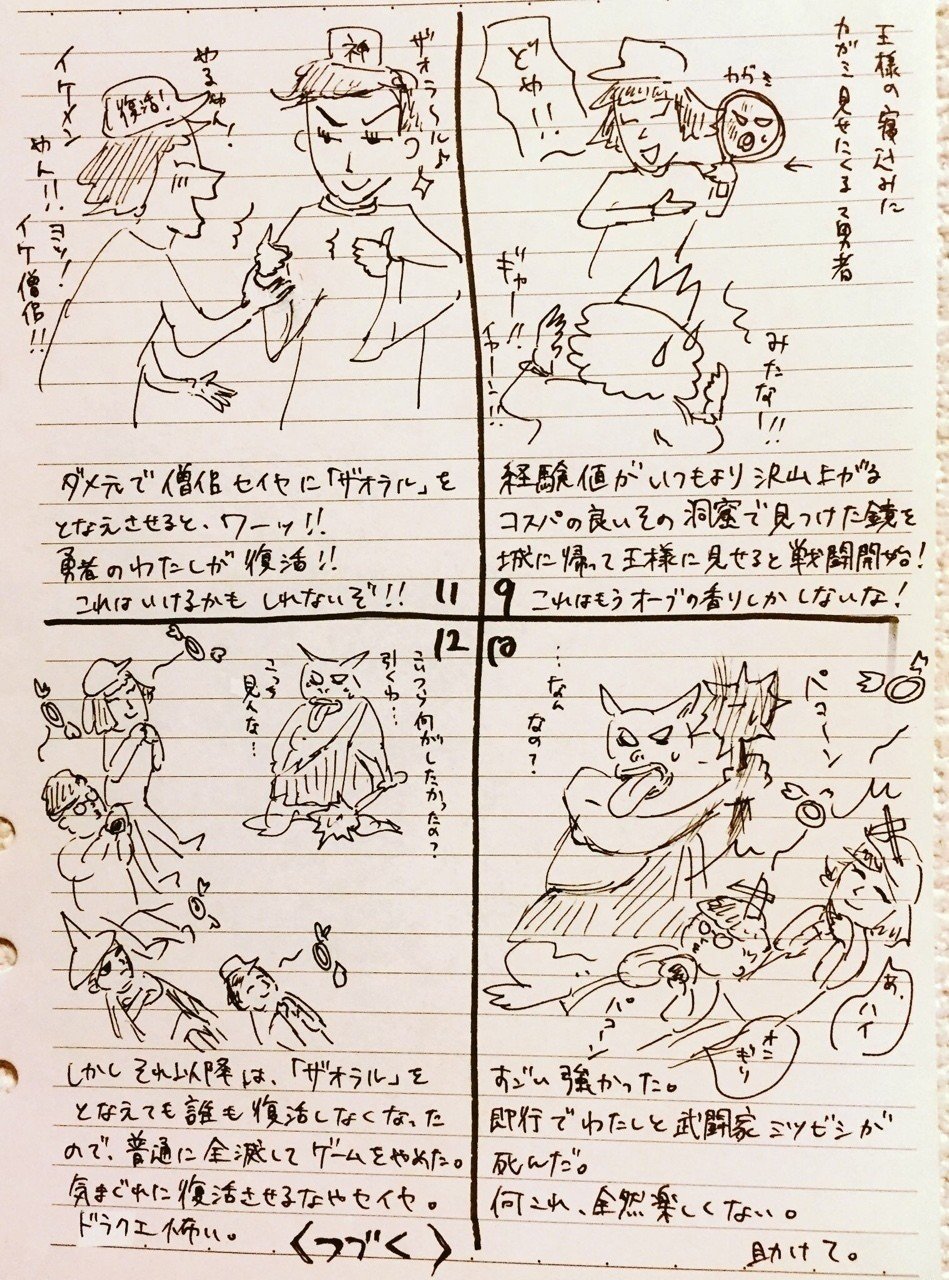 王様の寝込みに
カガミ見せにくるて勇者
カガミ
どや!!
ギャー!!
イャーン!!
みたなー!!
経験値がいつもより沢山上がる
コスパの良いその洞窟で見つけた鏡を
城に帰って王様に見せると戦闘開始!
9 これはもうオーブの香りしかしないな!
10
ペョ〜ン
…なん
なの?
あ、
ハイ
オニ
ギリ
パコーン
すごい強かった。
即行でわたしと武闘家ミツビシが
死んだ。
何これ、全然楽しくない。
助けて。
ザオラ〜ル♪
神
やるやん!
復活!
イケメン
やん!!ヨッ!
イケ僧侶!!
ダメ元で僧侶セイヤに「ザオラル」を
となえさせると、ワーッ!!
勇者のわたしが復活!!
これはいけるかもしれないぞ!! 11
12
こいつら何がしたかったの?
引くわ…
こっち
見んな…
しかしそれ以降は、「ザオラル」を
となえても誰も復活しなくなった
ので、普通に全滅してゲームをやめた。
気まぐれに復活させるなやセイヤ。
ドラクエ怖い。
〈つづく〉